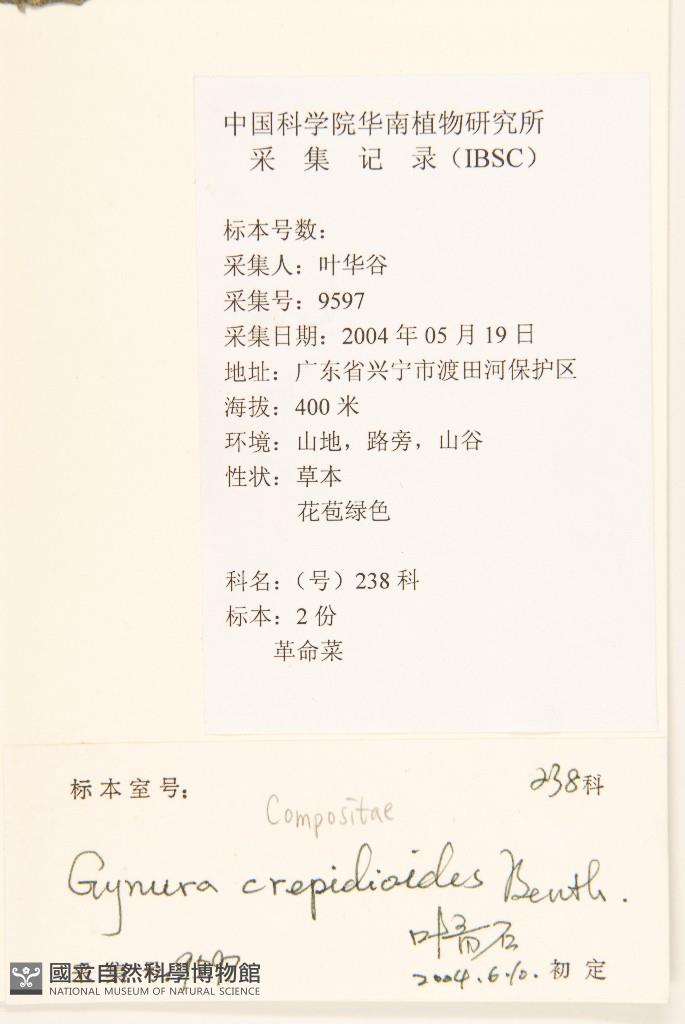 中国科学院华南植物研究所
采 集 记 录（IBSC）
标本号数：
采集人：叶华谷
采集号：9597
采集日期：2004 年 05 月 19 日
地址：广东省兴宁市渡田河保护区
海拔：400 米
环境：山地，路旁，山谷
性状：草本
花苞绿色
科名：（号）238 科
标本：2 份
革命菜
标本室号：
238科
Compositae
Gynura crepidioides Benth.
2004.6.10. 初 定
國立自然科學博物館
NATIONAL MUSEUM OF NATURAL SCIENCE